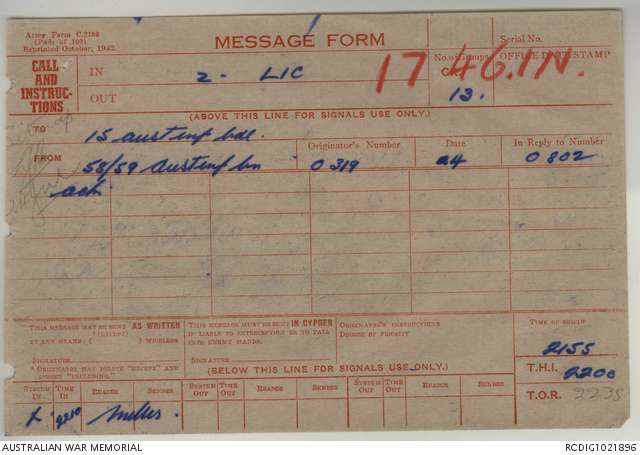 Army Form C.2188
(Pads of 100)
Reprinted October, 1942.
MESSAGE FORM
Serial No.
CALL AND INSTRUC-TIONS
IN 2 - LIC
No. of Groups
OFFICE DATE STAMP
1746.IN.
OUT
13.
(ABOVE THIS LINE FOR SIGNALS USE ONLY.)
TO 15 aust inf bde
FROM 58/59 Aust inf bn
Originator's Number 0319
Date 24
In Reply to Number 0802
ack
THIS MESSAGE MAY BE SENT AS WRITTEN
BY ANY MEANS. ( ) WIRELESS
SIGNATURE
* ORIGINATOR MAY DELETE "EXCEPT" AND INSERT "INCLUDING."
THIS MESSAGE MUST BE SENT IN CYPHER
IF LIABLE TO INTERCEPTION OR TO FALL INTO ENEMY HANDS.
SIGNATURE
ORIGINATOR'S INSTRUCTIONS
DEGREE OF PRIORITY
TIME OF ORIGIN
2155
(BELOW THIS LINE FOR SIGNALS USE ONLY.)
T.H.I. 2200
T.O.R. 2235
SYSTEM IN TIME IN READER SENDER SYSTEM OUT TIME OUT READER SENDER SYSTEM OUT TIME OUT READER SENDER
2210
AUSTRALIAN WAR MEMORIAL
RCDIG1021896